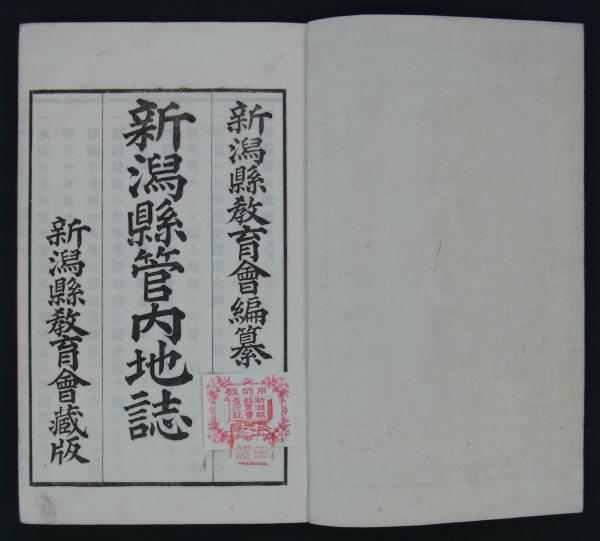 新潟縣教育會編纂
新潟縣管内地誌
新潟縣教育會藏版